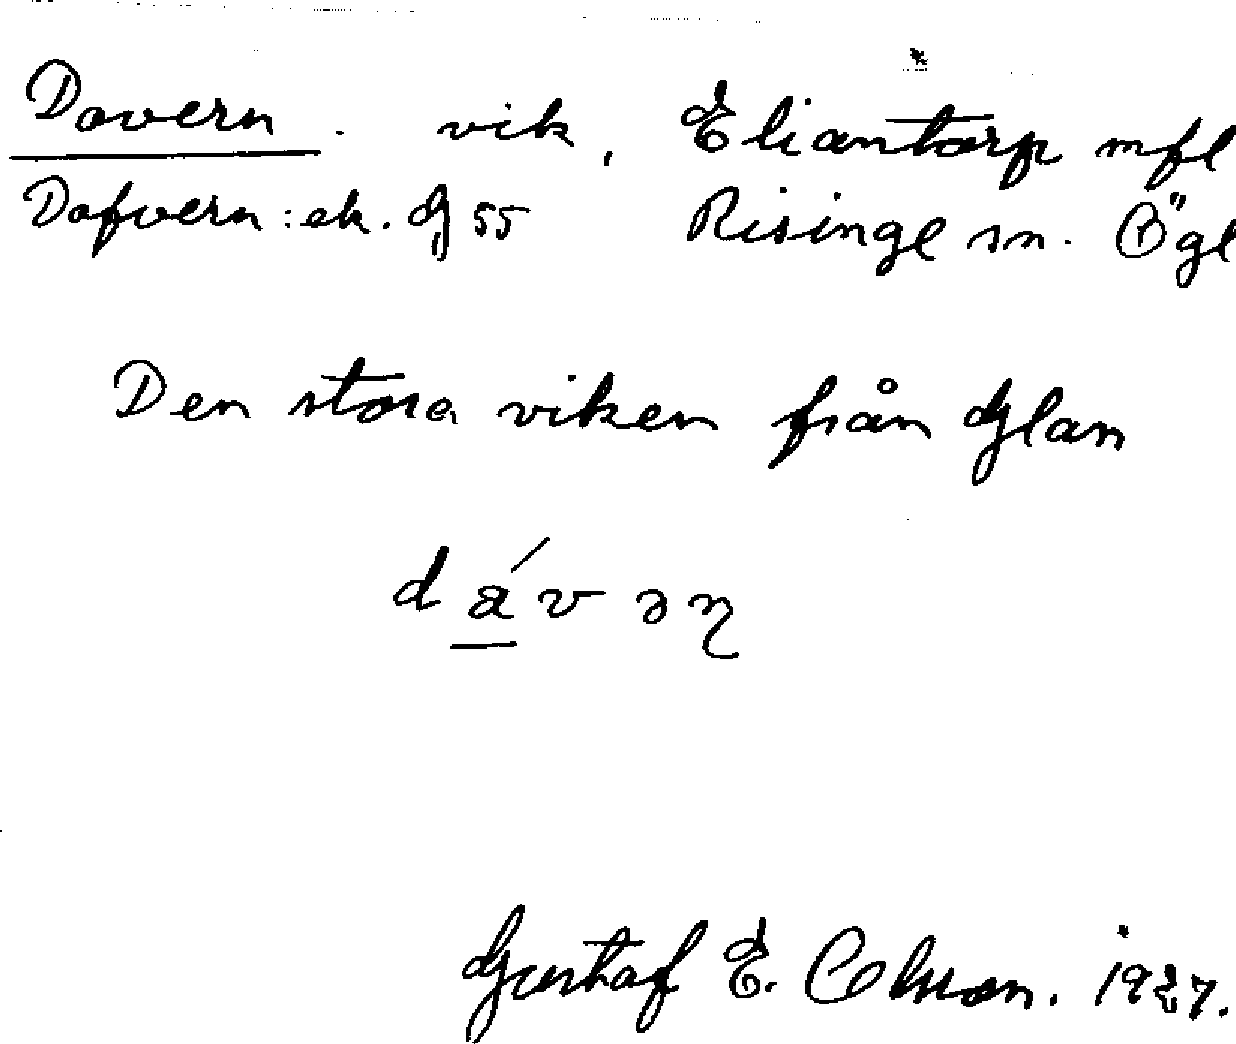 Davern. vik, Eliantorp mfl
Dafvern: ek. G 55 Risinge sn. Ögl
Den stora viken från Glan
dá̱vəɳ
Gustaf E. Olsson. 1927.